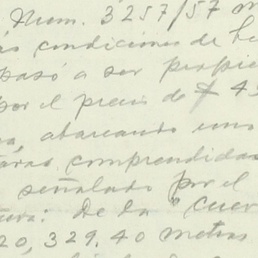 Num. 3257/57 m
as condiciones de te
pasó a ser propie
por el precio de $ 45
va, abarcando unos
táreas comprendidas
señalado por el
tura: De la "cuev
20,329.40 metros